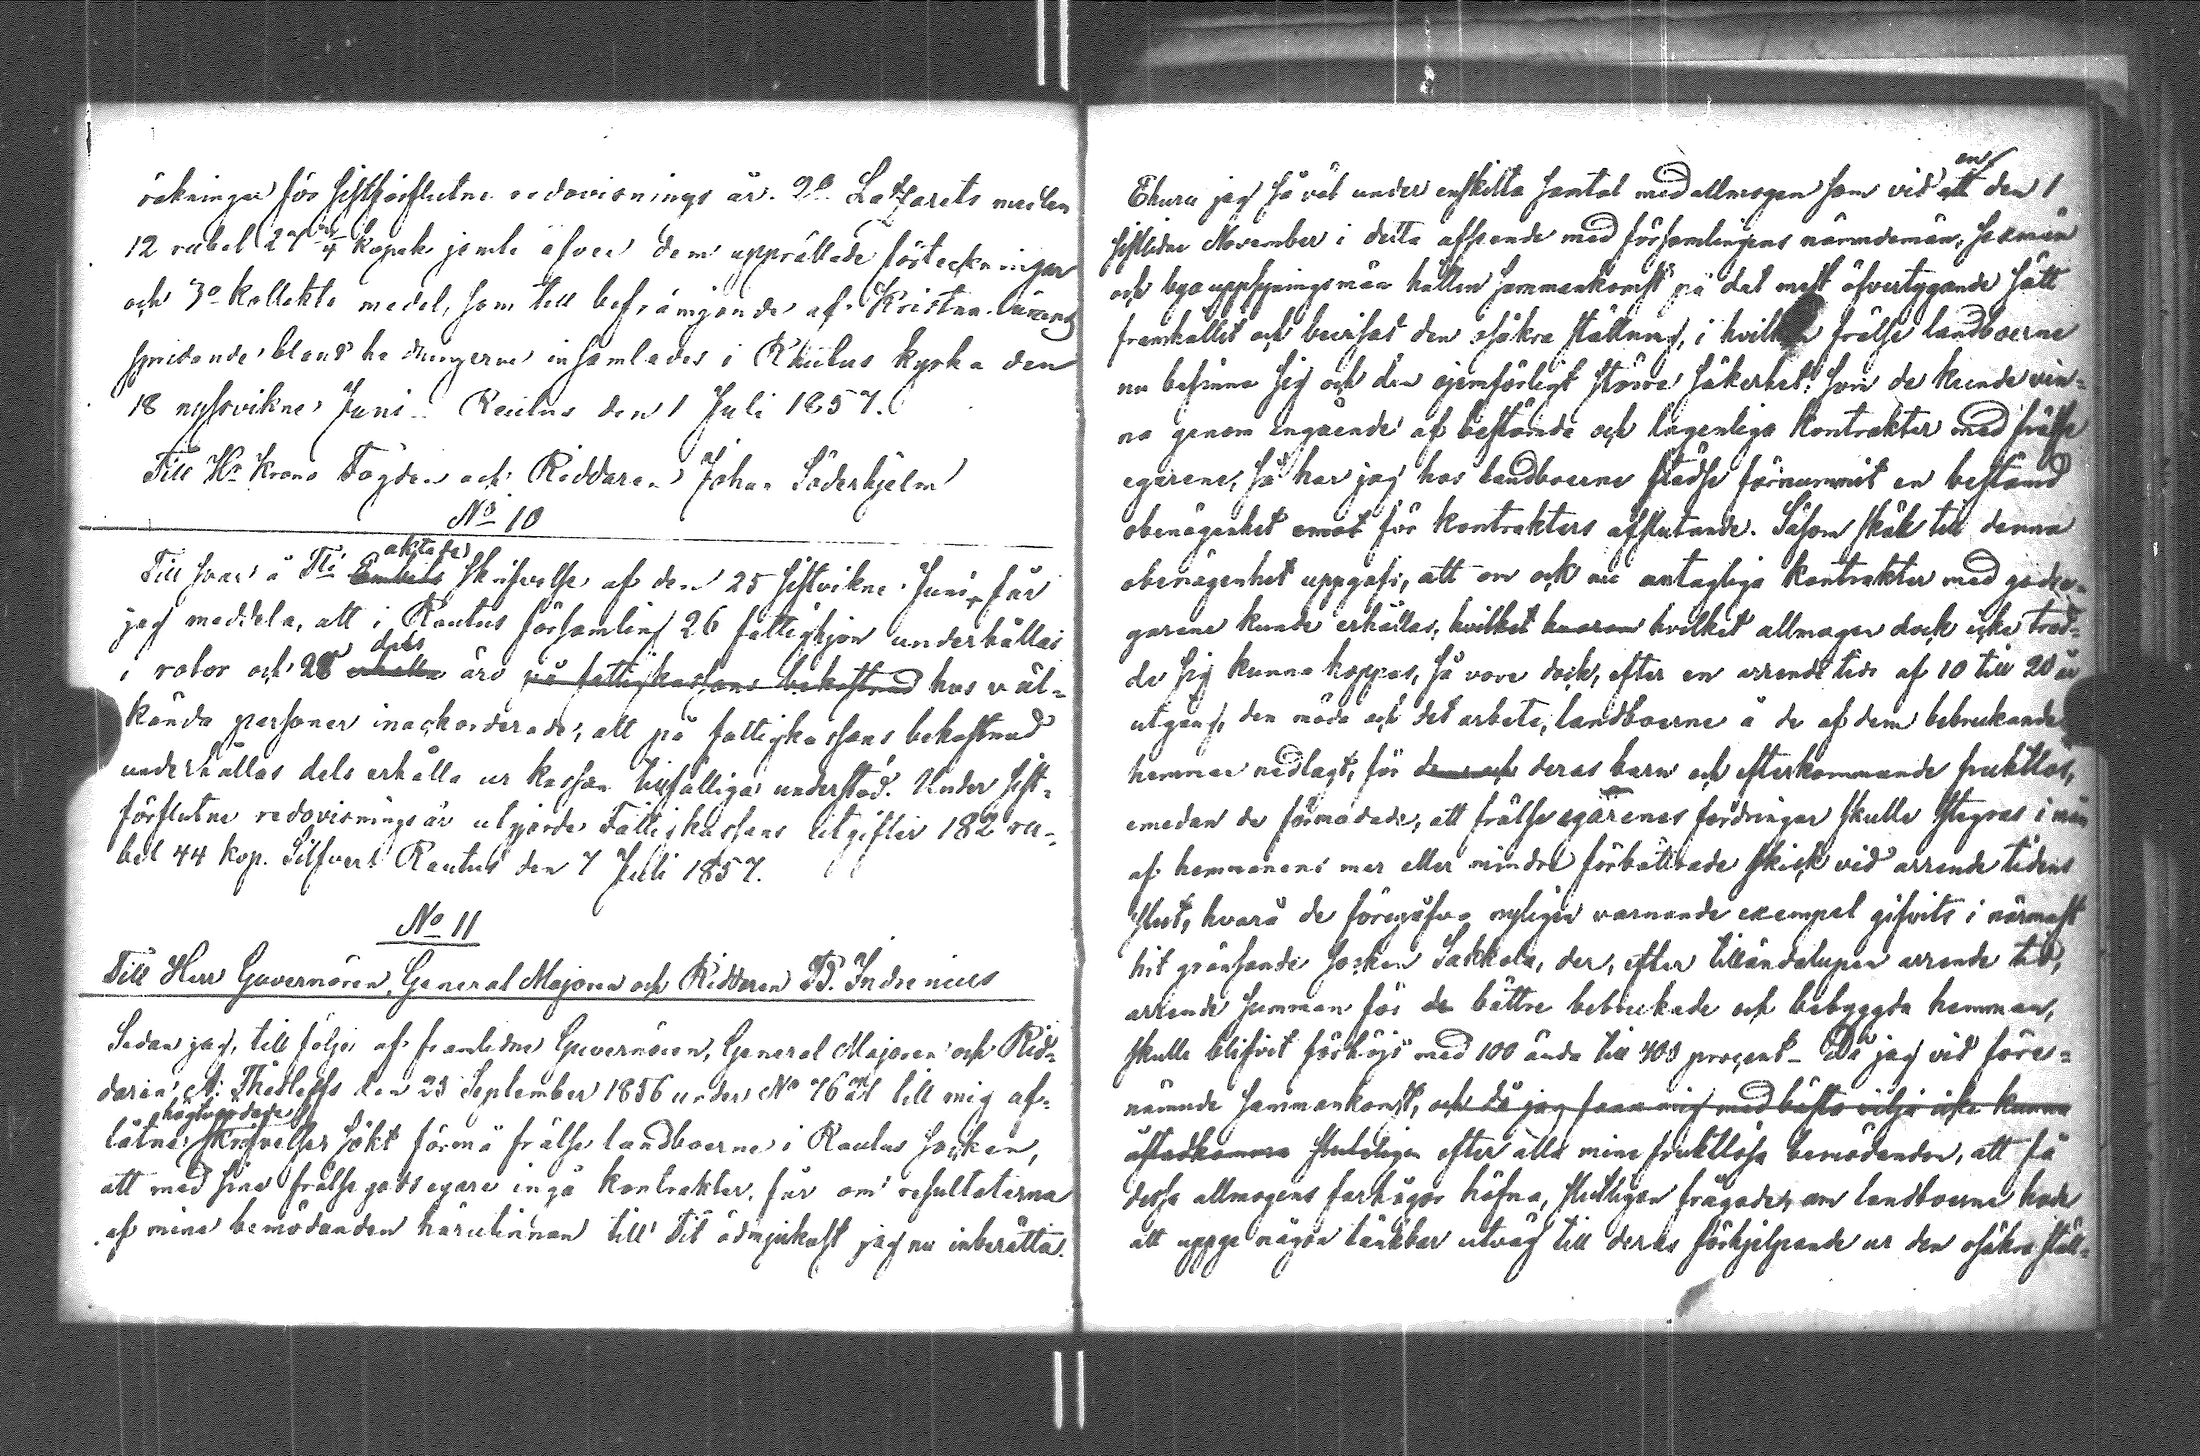 räkningar för sistförflutne redovisnings år. 2o Lazarets medlen
12 rubel 27 3/4 kopek jemte äfver dem upprättade förteckningar
och 3o kollekte medel, som till befrämjande af Kristna lärans
spridande bland hedningarne insamlades i Rautus kyrka den
18 nyssvikne Juni. Rautus den 1 Juli 1857.
Till Hr Krono Fogden och Riddaren Johan Söderhjelm
No 10
Till svar å Tit aktade Embets skrifvelse af den 25 sistvikne Juni får
jag meddela, att i Rautus församling 26 fattighjon underhållas
i rotor och 28 dels erhålla äro på fattigkassans bekostnad hos väl-
kända personer inackorderade, att på fattigkassans bekostnad
underhållas dels erhålla ur kassan tillfälliga understöd. Under sist-
förflutne redovisningsår utgjorde Fattigkassans utgifter 182 ru-
bel 44 kop. Silfver. Rautus den 7 Juli 1857.
No 11
Till Herr Guvernören, General Majoren och Riddaren B. Indrenius
Sedan jag, till följe af framledne Guvernören, General Majoren och Rid-
daren A. Thesleffs den 23 September 1856 under No 76 till mig af-
låtna högtvördade skrifvelse, sökt förmå frälse landboerne i Rautus socken,
att med sine frälse godsegare ingå kontrakter, får om resultaterna
af mina bemödanden härutinnan till Tit ödmjukast jag nu inberätta.
Ehuru jag så väl under enskilta samtal med allmogen som vid ett en den 1
sistlidne November i detta afseende med församlingens nämndemän, sexmän
och byauppsyningsmän hållen sammankomst på det mest öfvertygande sätt
framhållit och bevisat den osäkra ställning, i hvilken frälse landboerne
nu befinna sig och den ojemförligt större säkerhet, som de kunde vin-
na genom ingående af bestämda och lagenliga kontrakter med frälse
egarene, så har jag hos landboerne städse förnummit en bestämd
obenägenhet emot för kontrakters afslutande. Såsom skäl till denna
obenägenhet uppgafs, att om ock nu antagliga kontrakter med godse-
garene kunde erhållas, hvilket hvarom hvilket allmogen dock icke trod-
de sig kunna hoppas, så vore dock, efter en arrendetids af 10 till 20 år
utgång, den möda och det arbete, landboerne å de af dem bebrukande
hemman nedlagt, för dem och deras barn och efterkommande fruktlös,
emedan de förmodade, att frälse egarenes fordringar skulle stegras i mån
af hemmanens mer eller mindre förbättrade skick vid arrende tidens
slut, hvarå de föregåfvo nyligen varnande exempel gifvits i närmast
hit gränsande socken Sakkola, der, efter tilländalupen arrende tid,
arrende summan för de bättre bebrukade och bebyggda hemman,
skulle blifvit förhöjd med 100 ända till 400 procent. Då jag vid före-
nämnde sammankomst, och då jag fann mig med bästa vilja icke kunna
åstadkomma slutligen efter alla mine fruktlösa bemödanden, att få
desse allmogens farhågor häfna, slutligen frågade, om landboerne hade
att uppge någon tänkbar utväg till deras förhjelpande ur den osäkra ställ-